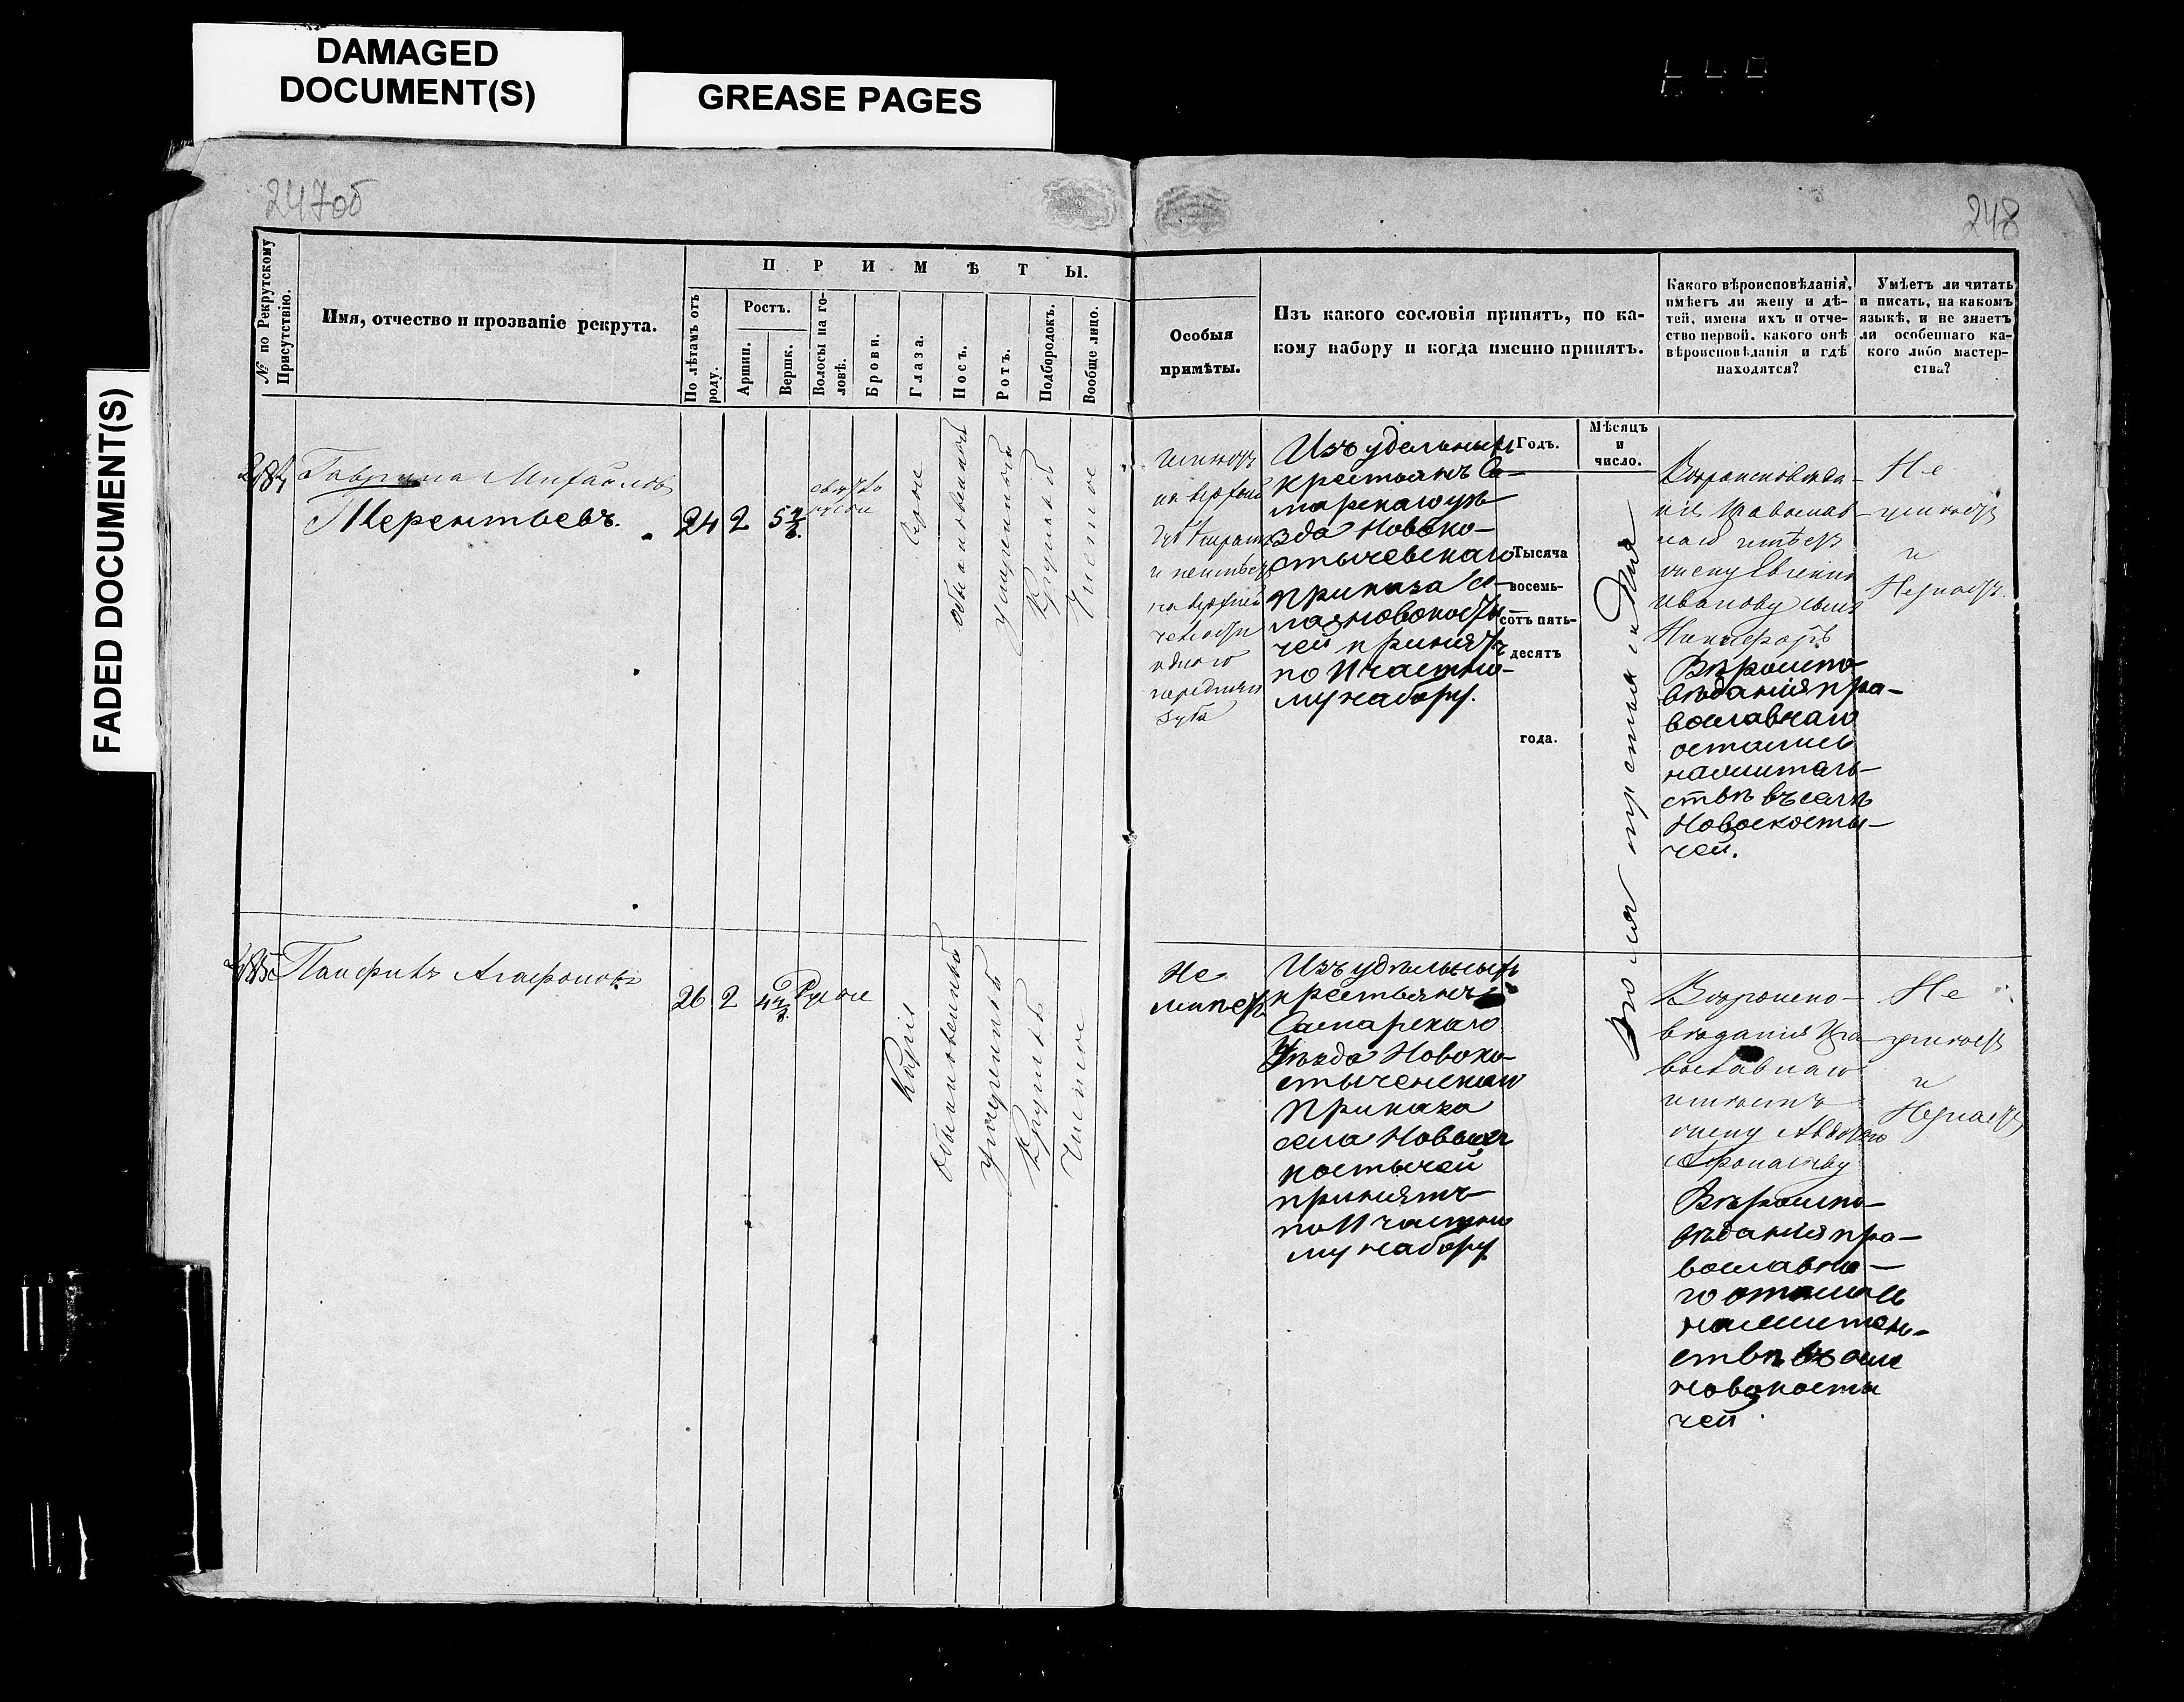 DAMAGED
DOCUMENT(S)
GREASE PAGES
FADED DOCUMENT(S)
247об
248
№ по Рекрутскому
Присутствію.
Имя, отчество и прозваніе рекрута.
ПРИМѢТЫ.
По лѣтамъ отъ
роду.
Ростъ.
Аршин.
Вершк.
Волосы на го-
ловѣ.
Брови.
Глаза.
Носъ.
Ротъ.
Подбородокъ.
Вообще лицо.
Особыя
примѣты.
Изъ какого сословія принятъ, по ка-
кому набору и когда именно принятъ.
Какого вѣроисповѣданія,
имѣетъ ли жену и дѣ-
тей, имена ихъ и отче-
ство первой, какого онѣ
вѣроисповѣданія и гдѣ
находятся?
Умѣетъ ли читать
и писать, на какомъ
языкѣ, и не знаетъ
ли особеннаго ка-
кого либо мастер-
ства?
Годъ.
Мѣсяцъ
и
число.
Гаврила Михайловъ
Терентьевъ.
24 2 5
свѣтло
русые
Серые
обыкновенный
умеренный
Круглый
Чистое
имеетъ
на верхней
и неимеетъ
на верхней
челюсти
одного
передняго
зуба
Изъ удельныхъ
крестьянъ Са-
марскаго уѣ-
зда Новоко-
стычевскаго
приказа се-
ла Новокосты-
чей принятъ
по 11 частно-
му набору.
Тысяча
восемь-
сотъ пять-
десятъ
года.
Вѣроисповѣда-
нія Православ-
наго имѣетъ
жену Евгению
Иванову сына
Никифора
Вѣроиспо-
вѣданія пра-
вославнаго
остались
на жительст-
ствѣ въ селѣ
Новокосты-
чей.
Не
умѣетъ
и
Незнаетъ.
Панфилъ Агафоновъ
26 2 4
Русые
Карие
Обыкновенный
Умеренный
Круглый
Чистое
Не
имеетъ
Изъ удѣльныхъ
крестьянъ
Самарскаго
Уѣзда Новоко-
стыченскаго
Приказа
села Новыхъ
Костычей
принятъ
по 11 частно
му набору
Вѣроиспо-
вѣданія Пра-
вославнаго
имѣетъ
жену Авдотью
Вѣроиспо-
вѣданія пра-
вославна-
го остались
на жительст-
ствѣ въ селе
Новокосты
чей.
Не
умѣетъ
и
Незнаетъ